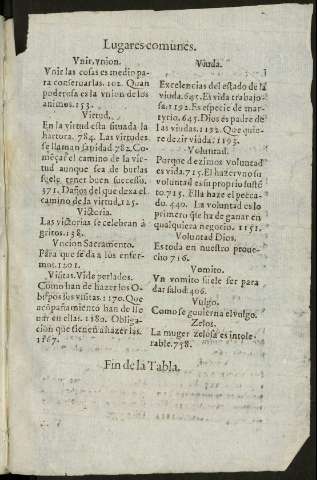 Lugares comunes.
Vnir, vnion.
Vnir las cosas es medio pa-
ra conseruarlas. 102. Quan
poderosa es la vnion de los
animos. 153.
Virtud.
En la virtud esta situada la
hartura. 784. Las virtudes
se llaman sapidad 782. Co-
mēçar el camino de la vir-
tud aunque sea de burlas
suele tener buen successo.
371. Daños del que dexa el
camino de la virtud, 125.
Victoria.
Las victorias se celebran à
gritos. 138.
Vncion Sacramento.
Para que se da a los enfer-
mos. 1201.
Visitas. Vide perlados.
Como han de hazer los O-
bispos sus visitas. 1170. Que
acōpañamiento han de lle-
uar en ellas. 1180. Obliga-
cion que tienen a hazerlas.
1167.
Viuda.
Excelencias del estado de la
viuda. 645. Es vida trabajo-
sa. 1192. Es especie de mar-
tyrio. 645. Dios es padre de
las viudas. 1192. Que quie-
re dezir viuda. 1193.
Voluntad.
Porque dezimos voluntad
es vida. 715. El hazer vno su
voluntad es su proprio susté
to 715. Ella haze el pecca-
do. 440. La voluntad es lo
primero q̄ se ha de ganar en
qualquiera negocio. 1151.
Voluntad Dios.
Es toda en nuestro proue-
cho 716.
Vomito.
Vn vomito suele ser para
dar salud. 406.
Vulgo.
Como se gouierna el vulgo.
Zelos.
La muger zelosa es intole-
rable. 758.
Fin de la Tabla.